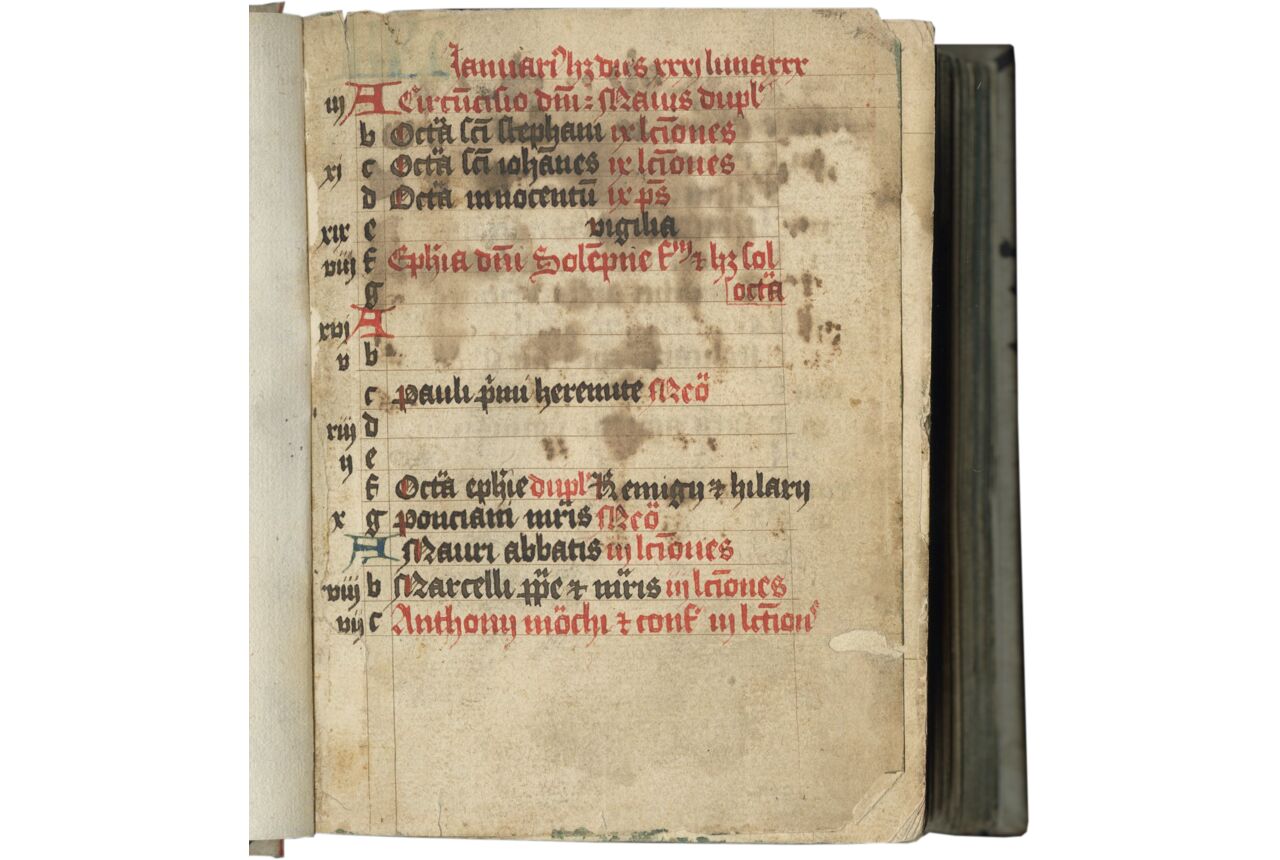 Ianuariꝰ hꝫ dies xxxj luna xxx
iij A Circūcisio dn̄i: Maius dupl'
b Octa᷒ sc̄i stephani ix lcīones
xj c Octa᷒ sc̄i ioha̅nes ix lcīones
d Octa᷒ innocentū ix ps̄
xix e vigilia
viij f Eph̄ia dn̄i Solēpne f hꝫ sol
g octä
xvj A
v b
c Pauli p̄mi heremite Meō
xiij d
ij e
f Octä eph̄ie dupl' Remigij ⁊ hilarij
x g Ponciani mr̄is Meō
A Mauri abbatis iij lcīones
xviij b Marcelli pp̄e ⁊ mr̄is iij lcīones
vij c Anthonij mōchi ⁊ conf' iij lctīon